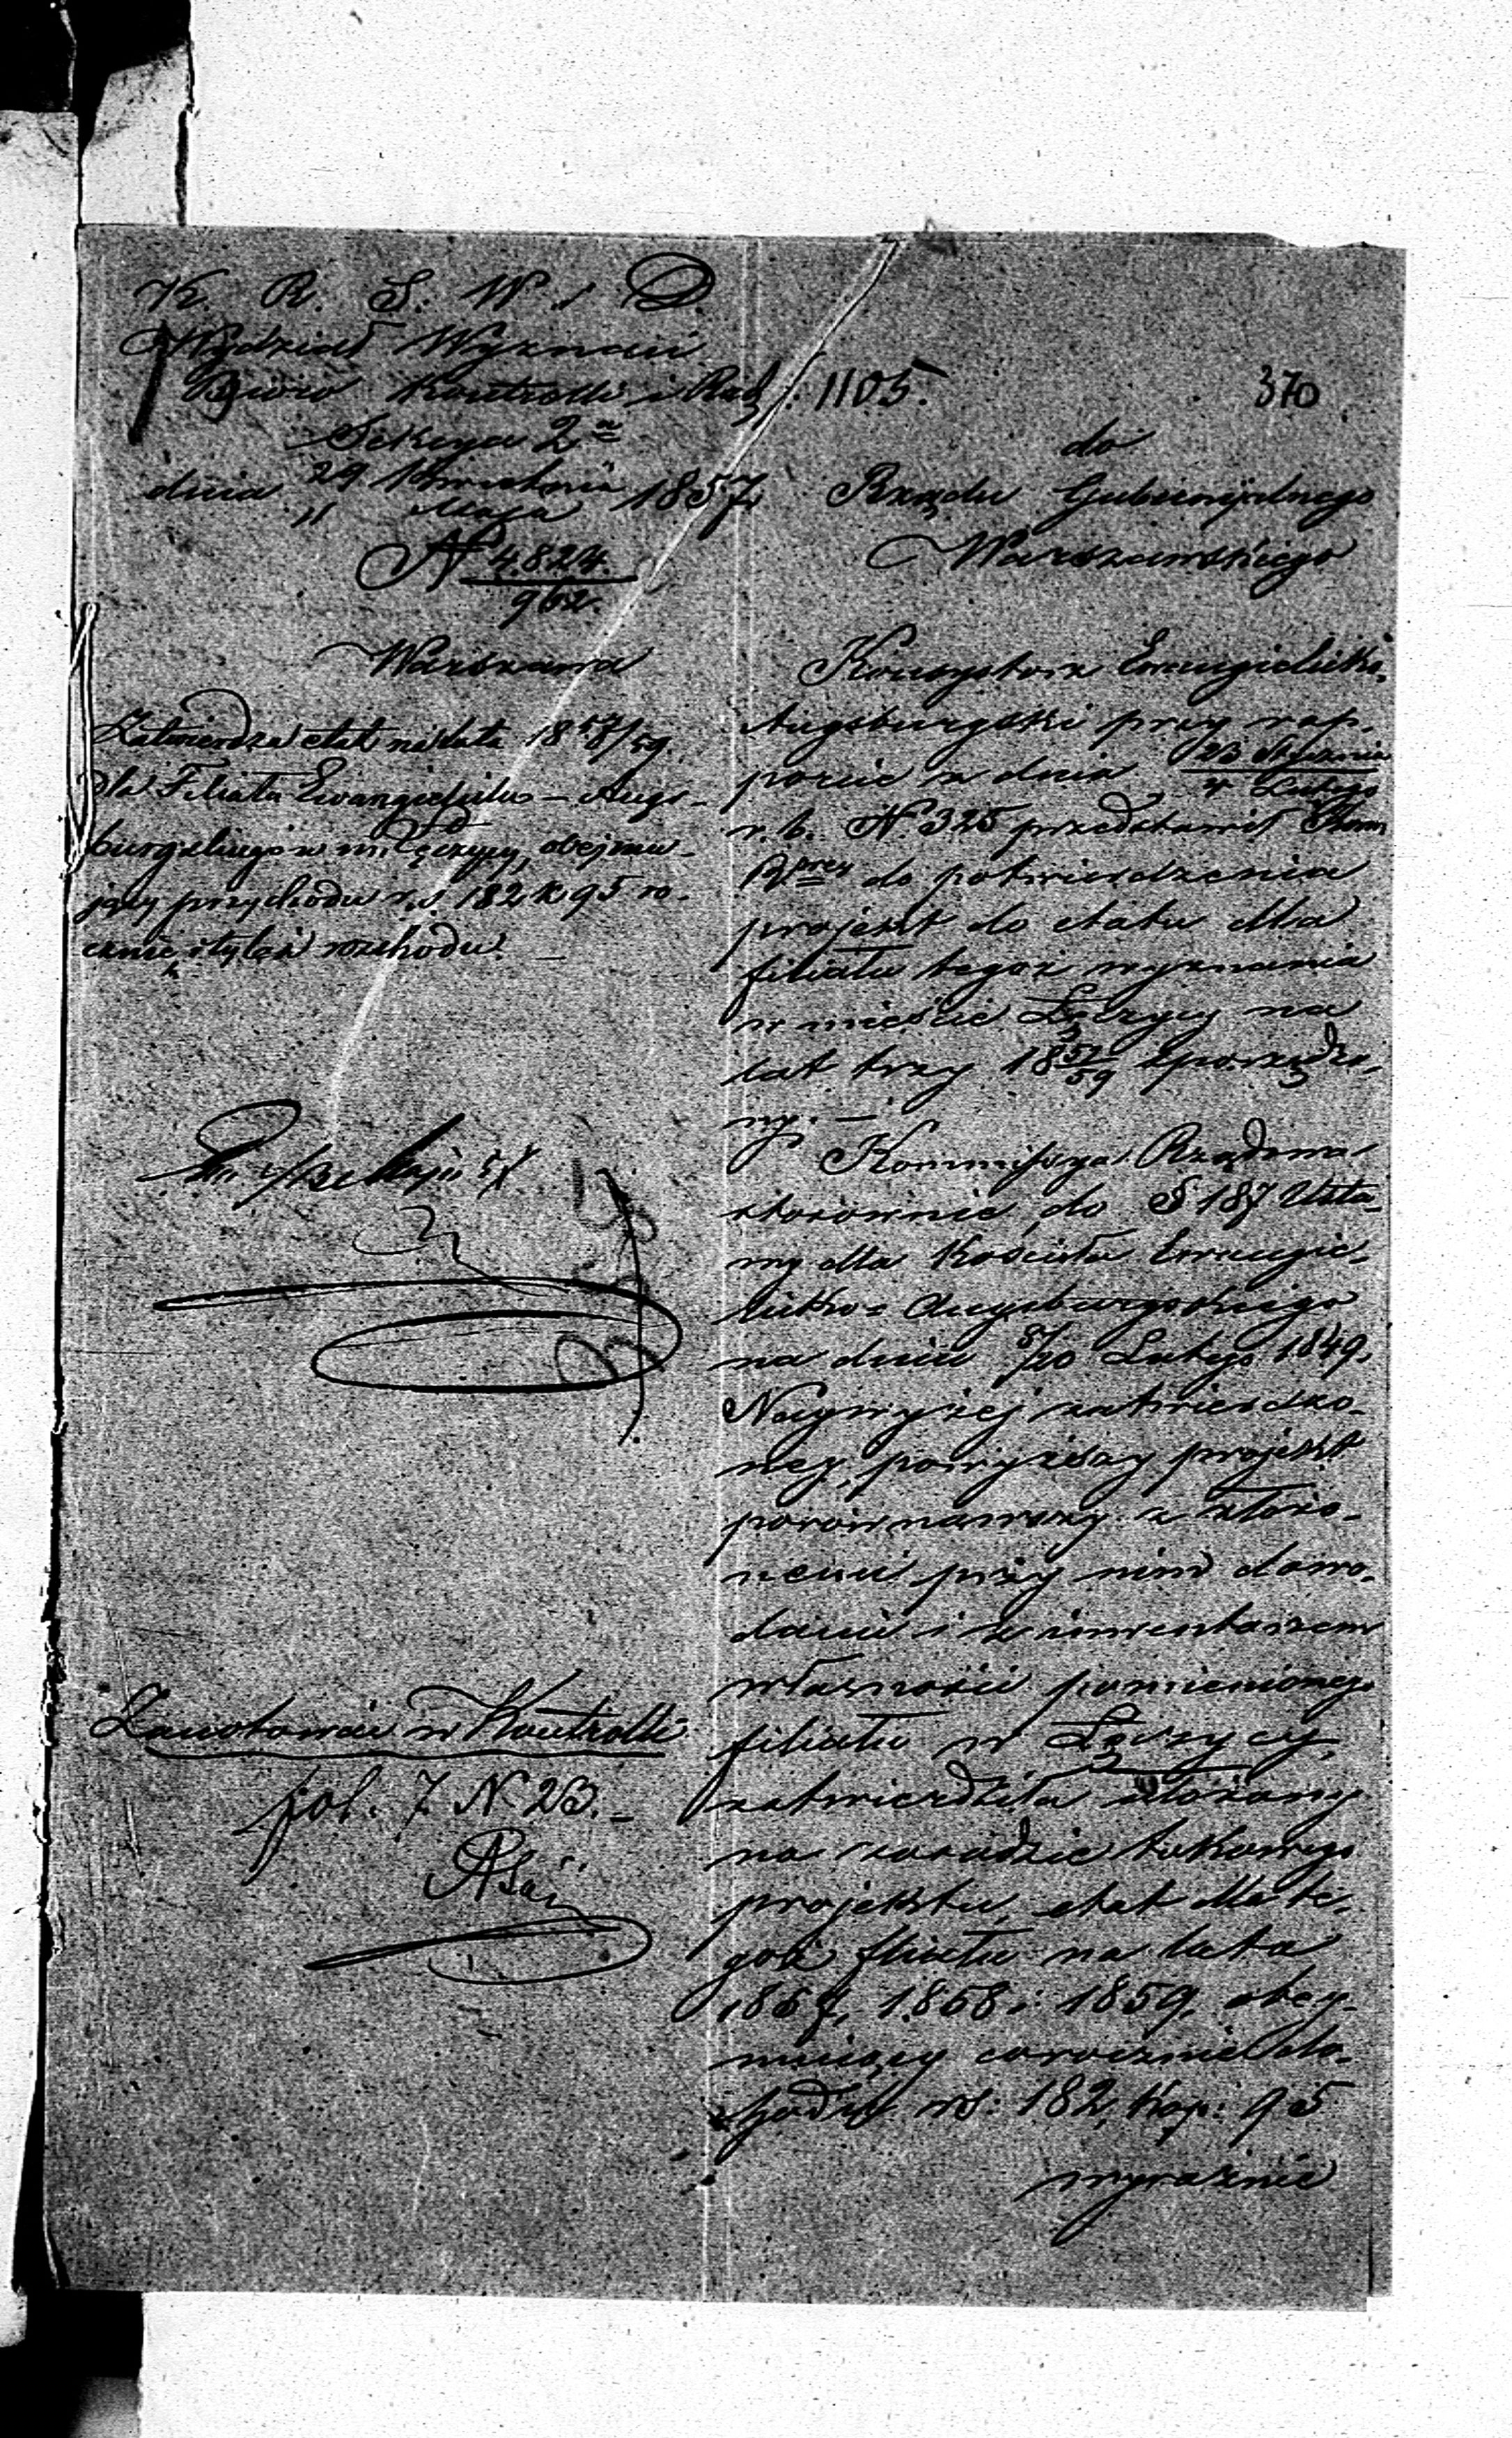 K. R. S. W. i D.
Wydział Wyznań
Biuro Kontrolli i Rach. 1105.
370
Sekcya 2ª
dnia 29 Kwietnia / 11 Maja 1857
N 4824. / 962.
Warszawa
Zatwierdza etat na lata 1857/59.
dla Filiału Ewangielicko-Augs-
burgskiego w m. Łęczycy, obejmu-
jący przychodu r. s. 182 k 95 ro-
cznie i tyleż rozchodu.
Zanotowano w Kontrolli
fol. 7. N. 23.
do
Rządu Gubernijalnego
Warszawskiego
Konsystorz Ewangielicko-
Augsburgski przy rap-
porcie z dnia 23 Stycznia / 4 Lutego
r. b. N. 325 przedstawił Kom
Rządowej do potwierdzenia
projekt do etatu dla
filiału tegoż wyznania
w mieście Łęczycy na
lat trzy 1857/59 sporządzo-
ny. —
Kommissya Rządowa
stosownie do § 187 Usta-
wy dla Kościoła Ewangie-
licko-Augsburgskiego
na dniu 8/20 Lutego 1849.
Naywyżej zatwierdzo-
ney, powyższy projekt
porównawszy z złożo-
nemi przy nim dowo-
dami i z inwentarzem
własności pomienionego
filiału w Łęczycy,
zatwierdziła ułożony
na zasadzie takowego
projektu, etat dla te-
goż filiału na lata
1857, 1858 i 1859, obey-
mujący corocznie do-
chodu rs: 182, kop: 95
wyraźnie